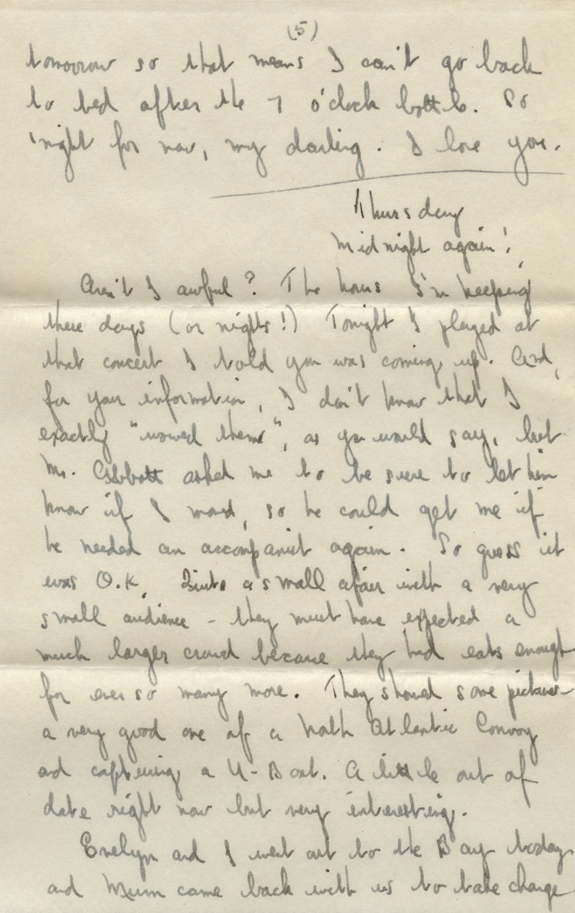 (5)
tomorrow so that means I can't go back
to bed after the 7 o'clock bottle. So
'night for now, my darling. I love you.
Thursday
Midnight again!
Aren't I awful? The hours I'm keeping
these days (or nights!) Tonight I played at
that concert I told you was coming up. And,
for your information, I don't know that I
exactly "wowed them", as you would say, but
Mr. Abbott asked me to be sure to let him
know if I moved, so he could get me if
he needed an accompanist again. So guess it
was O.K. Quite a small afair with a very
small audience - they must have expected a
much larger crowd because they had eats enough
for ever so many more. They showed some pictures
a very good one of a North Atlantic Convoy
and capturing a U-Boat. A little out of
date right now but very interesting.
Evelyn and I went out to the Bay today
and Mum came back with us to take charge